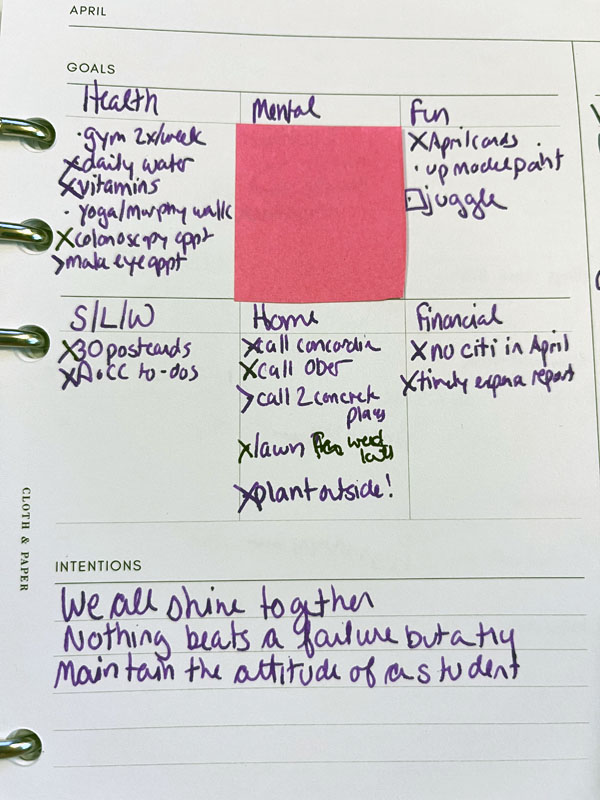 APRIL
GOALS
Health
Mental
Fun
·gym 2x/week
xdaily water
xvitamins
·yoga/murphy walk
xcolonoscopy appt
>make eye appt
xApril cards
·up model paint
□juggle
S/L/W
Home
Financial
x30 postcards
to-dos
xcall concordia
xcall Ober
>call 2 concrete
xlawn
xplant outside!
xno citi in April
xtimely report
CLOTH & PAPER
INTENTIONS
We all shine together
Nothing beats a failure but a try
Maintain the attitude of a student